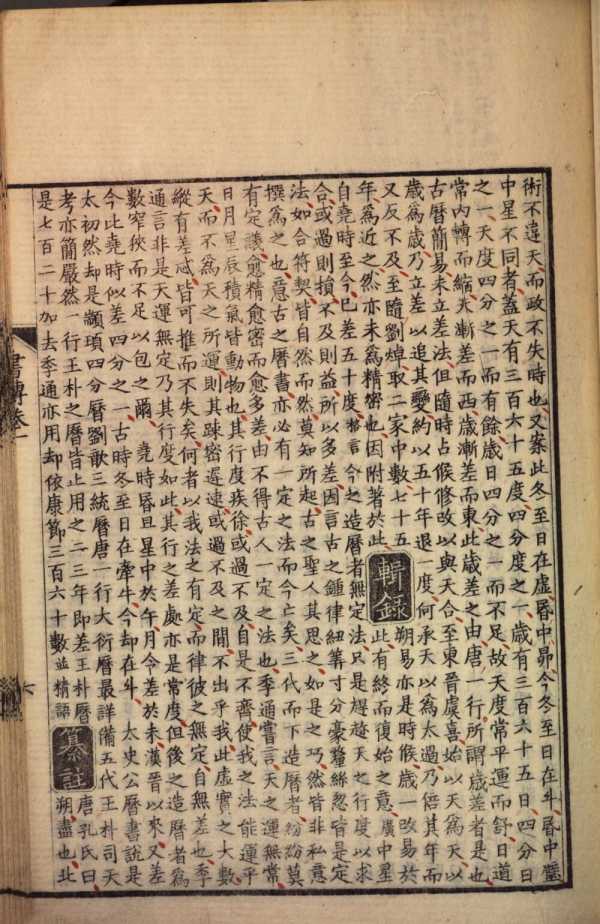 術不違天而政不失時也又案此冬至日在虛昬中昴今冬至日在斗昬中壁
中星不同者蓋天有三百六十五度四分度之一歲有三百六十五日四分日
之一天度四分之一而有餘歲日四分之一而不足故天度常平運而舒日道
常內轉而縮天漸差而西歲漸差而東此歲差之由唐一行所謂歲差者是也
古曆簡易未立差法但隨時占候修改以與天合至東晉虞喜始以天為天以
歲為歲乃立差以追其變約以五十年退一度何承天以為太過乃倍其年而
又反不及至隨劉焯取二家中數七十五
年為近之然亦未為精密也因附著於此
輯錄
朔易亦是時候歲一改易於
此有終而復始之意廣中星
自堯時至今已差五十度今之造曆者無定法只是趕趁天之行度以求
合或過則損不及則益所以多差因言古之鍾律紐筭寸分毫釐絲忽皆是定
法如合符契皆自然而然莫知所起古之聖人其思之如是之巧然皆非私意
撰為之也意古之曆書亦必有一定之法而今亡矣三代而下造曆者紛紛莫
有定議愈精愈密而愈多差由不得古人一定之法也季通嘗言天之運無常
日月星辰積氣皆動物也其行度疾徐或過不及自是不齊使我之法能運乎
天而不為天之所運則其踈密遲速或過不及之間不出乎我此虛寬之大數
縱有差忒皆可推而不失矣何者以我法之有定而律彼之無定自無差也季
通言非是天運無定乃其行度如此其行之差處亦是常度但後之造曆者為
數窄狹而不足以包之爾 堯時昬旦星中於午月令差於未漢晉以來又差
今比堯時似差四分之一古時冬至日在牽牛今却在斗 太史公曆書說是
太初然却是顓頊四分曆劉歆三統曆唐一行大衍曆最詳備五代王朴司天
考亦簡嚴然一行王朴之曆皆止用之二三年即差王朴曆
是七百二十加去季通亦用却依康節三百六十數並精語
纂註
唐孔氏曰
朔盡也北
書傳卷一
六